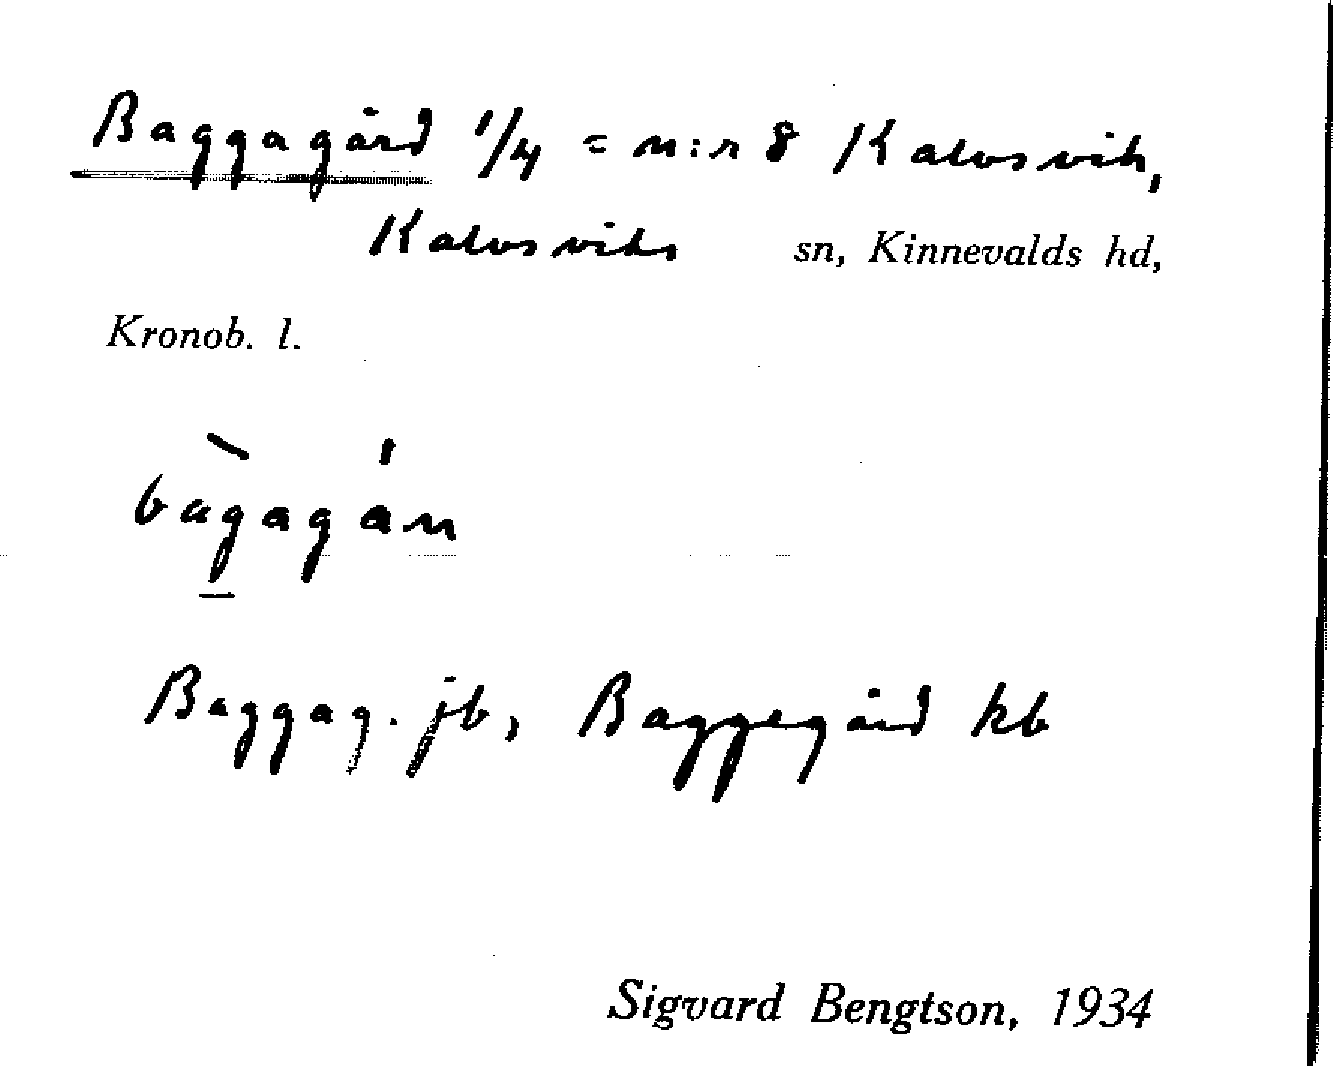 Baggagård 1/4 = n:r 8 Kalvsvik,
Kalvsviks sn, Kinnevalds hd,
Kronob. l.
bàg̲agán
Baggag. jb, Baggegård kb
Sigvard Bengtson, 1934